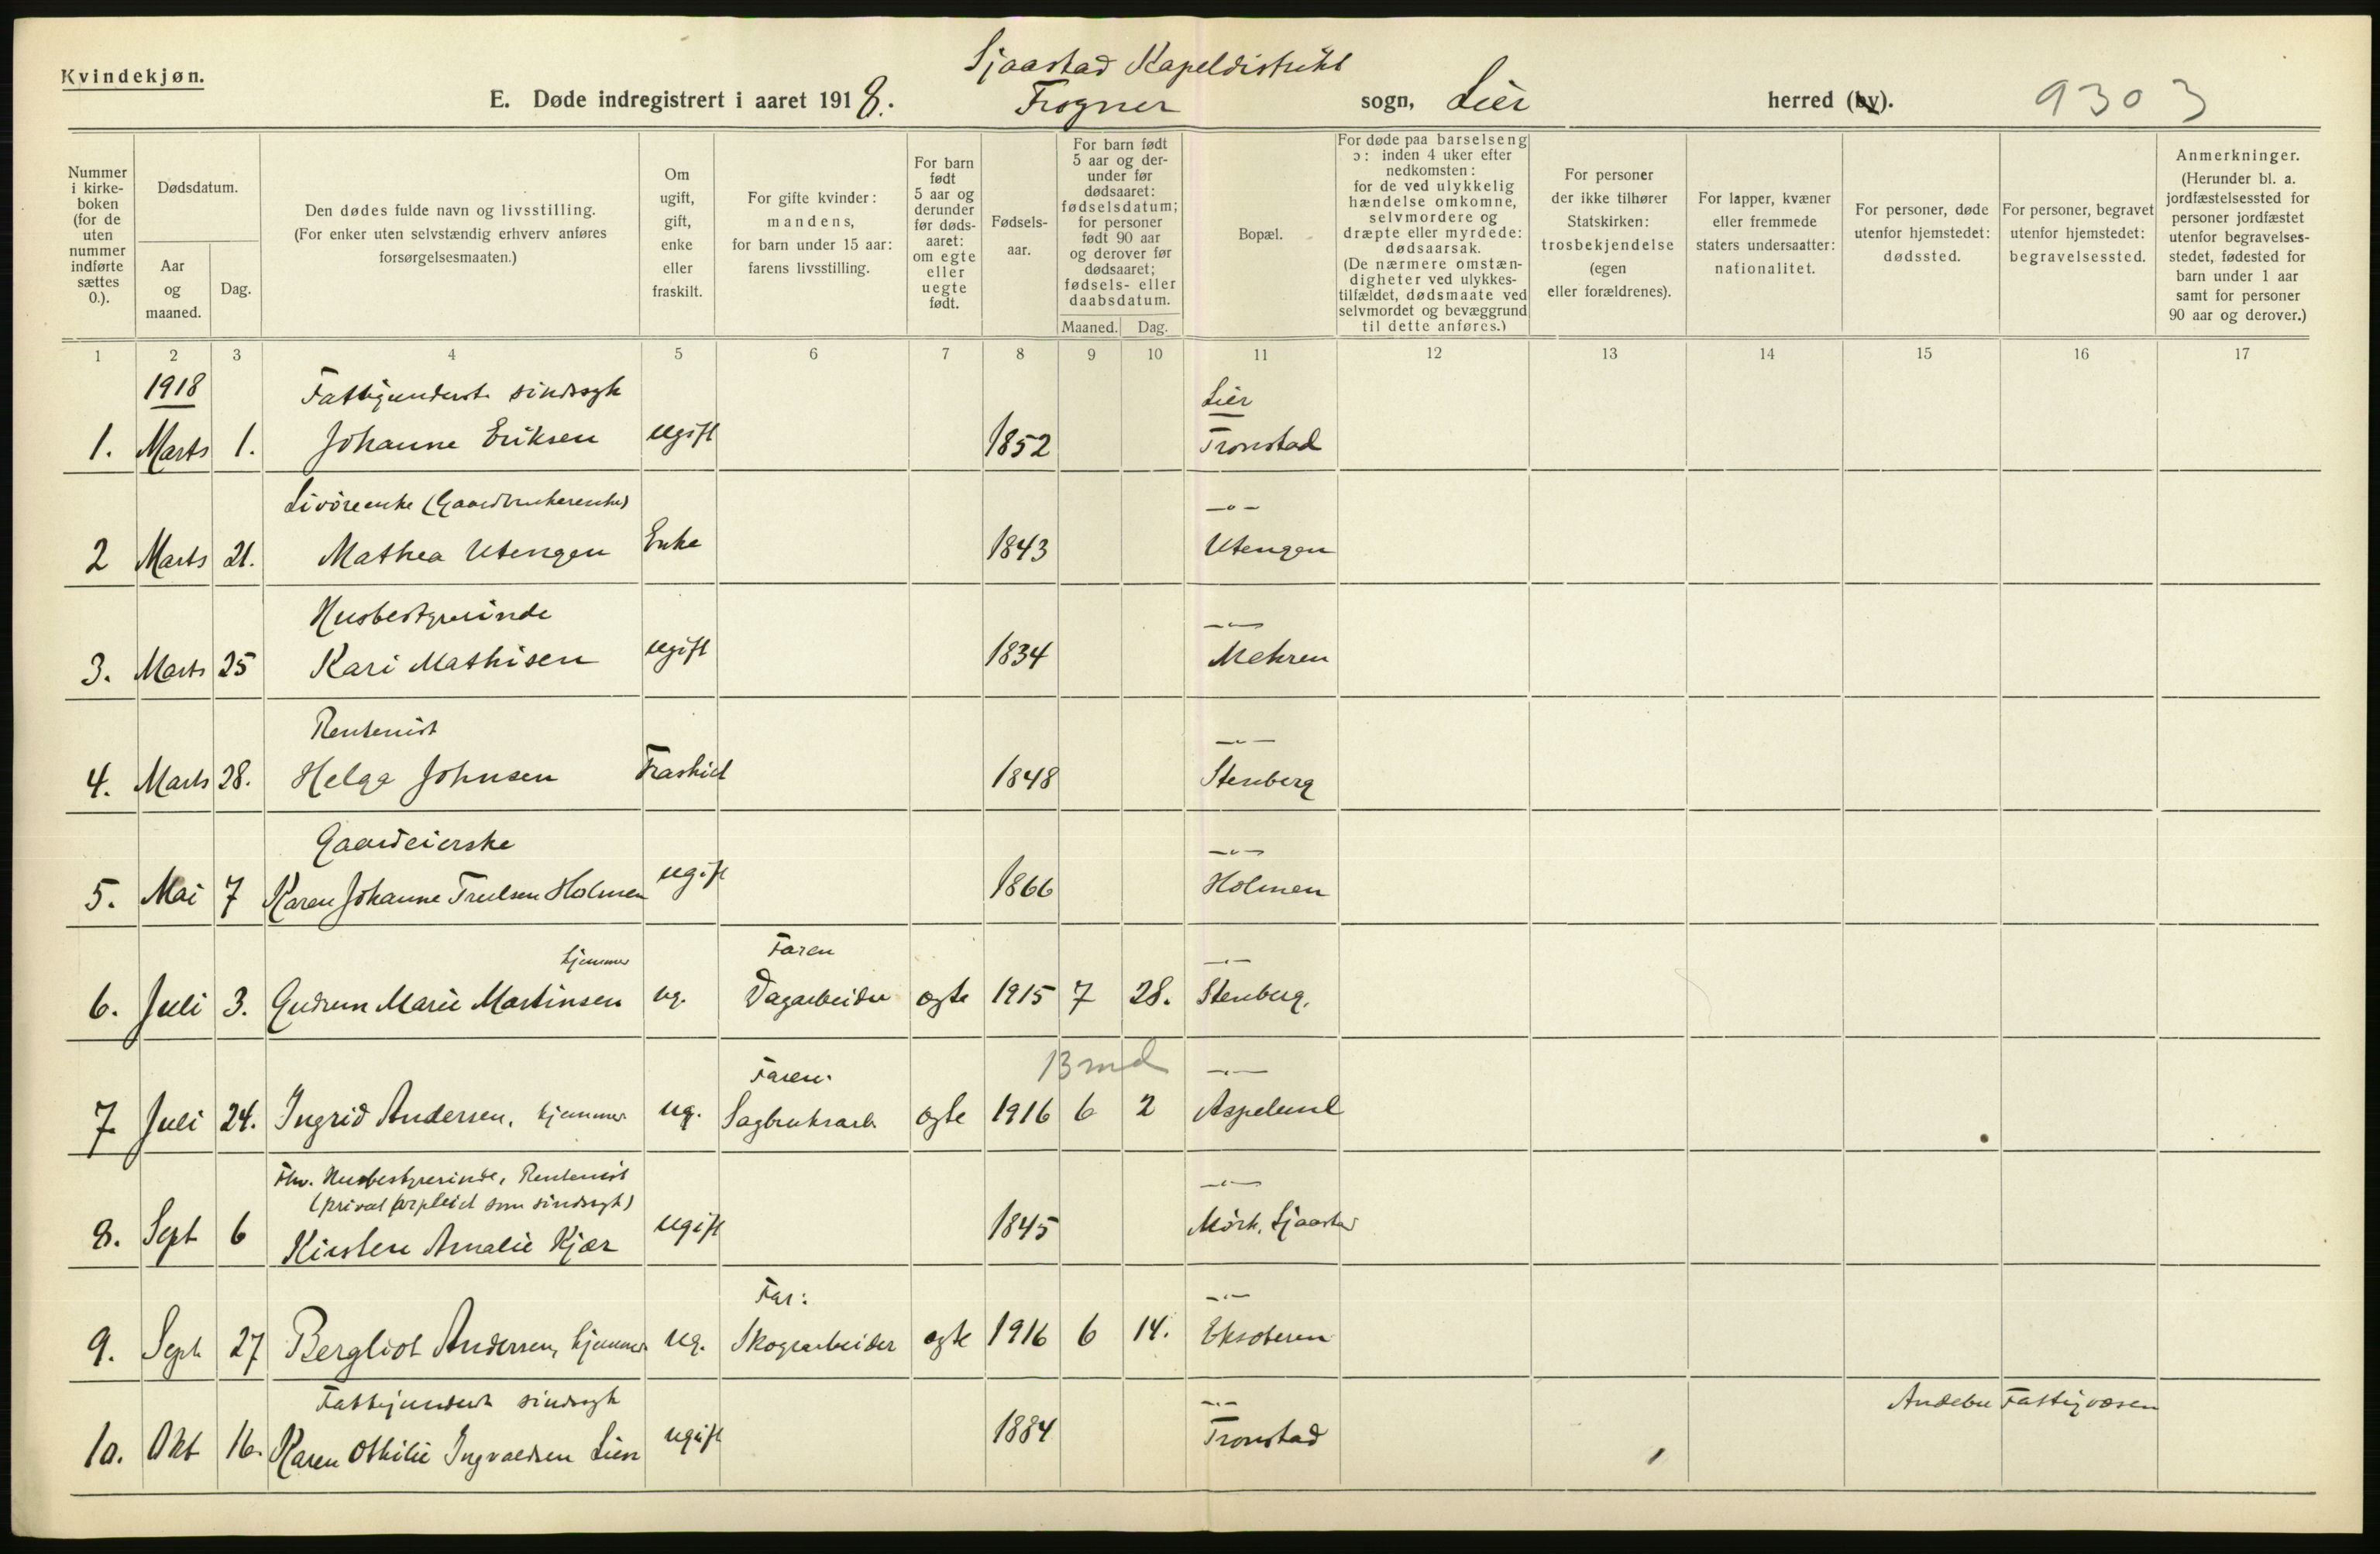 Kvindekjøn.
Sjaastad Kapeldistrikt
E. Døde indregistrert i aaret 1918. Frogner sogn, Lier herred (by). 9303
Nummer i kirkeboken (for de uten nummer indførte sættes 0.).
Dødsdatum.
Aar og maaned.
Dag.
Den dødes fulde navn og livsstilling. (For enker uten selvstændig erhverv anføres forsørgelsesmaaten.)
Om ugift, gift, enke eller fraskilt.
For gifte kvinder: mandens, for barn under 15 aar: farens livsstilling.
For barn født 5 aar og derunder før dødsaaret: om egte eller uegte født.
Fødselsaar.
For barn født 5 aar og derunder før dødsaaret: fødselsdatum; for personer født 90 aar og derover før dødsaaret; fødsels- eller daabsdatum.
Maaned. Dag.
Bopæl.
For døde paa barselseng ɔ: inden 4 uker efter nedkomsten: for de ved ulykkelig hændelse omkomne, selvmordere og dræpte eller myrdede: dødsaarsak. (De nærmere omstændigheter ved ulykkestilfældet, dødsmaate ved selvmordet og bevæggrund til dette anføres.)
For personer der ikke tilhører Statskirken: trosbekjendelse (egen eller forældrenes).
For lapper, kvæner eller fremmede staters undersaatter: nationalitet.
For personer, døde utenfor hjemstedet: dødssted.
For personer, begravet utenfor hjemstedet: begravelsessted.
Anmerkninger. (Herunder bl. a. jordfæstelsessted for personer jordfæstet utenfor begravelsesstedet, fødested for barn under 1 aar samt for personer 90 aar og derover.)
1 2 3 4 5 6 7 8 9 10 11 12 13 14 15 16 17
1918 Fattigunderst. sindssyk Lier
1. Marts 1. Johanne Eriksen ugift 1852 Tronstad
Livøreenke (Gaardbrukerenke) —o—
2 Marts 21. Mathea Utengen Enke 1843 Utengen
Husbestyrerinde —〃—
3. Marts 25 Kari Mathisen ugift 1834 Mehren
Rentenist —〃—
4. Marts 28. Helga Johnsen Fraskilt 1848 Stenberg
Gaardeierske —〃—
5. Mai 7 Karen Johanne Trulsen Holmen ugift 1866 Holmen
hjemmev. Faren —〃—
6. Juli 3. Gudrun Marie Martinsen ug. Dagarbeider egte 1915 7 28. Stenberg.
Faren. 13 md —〃—
7. Juli 24. Ingrid Andersen, hjemmev. ug. Sagbruksarb. egte 1916 6 2 Aspelund
Fhv. Husbestyrerinde, Rentenist —〃—
(privat forpleiet som sindssyk)
8. Sept 6 Kirsten Amalie Kjær ugift 1845 Mörk, Sjaastad
Far: —〃—
9. Sept 27 Bergliot Andersen, hjemmev. ug. Skogsarbeider egte 1916 6 14. Eksoteren
Fattigunderst. sindssyk —〃— Andebu Fattigvæsen
10. Okt 16. Karen Othilie Ingvaldsen Lien ugift 1884 Tronstad